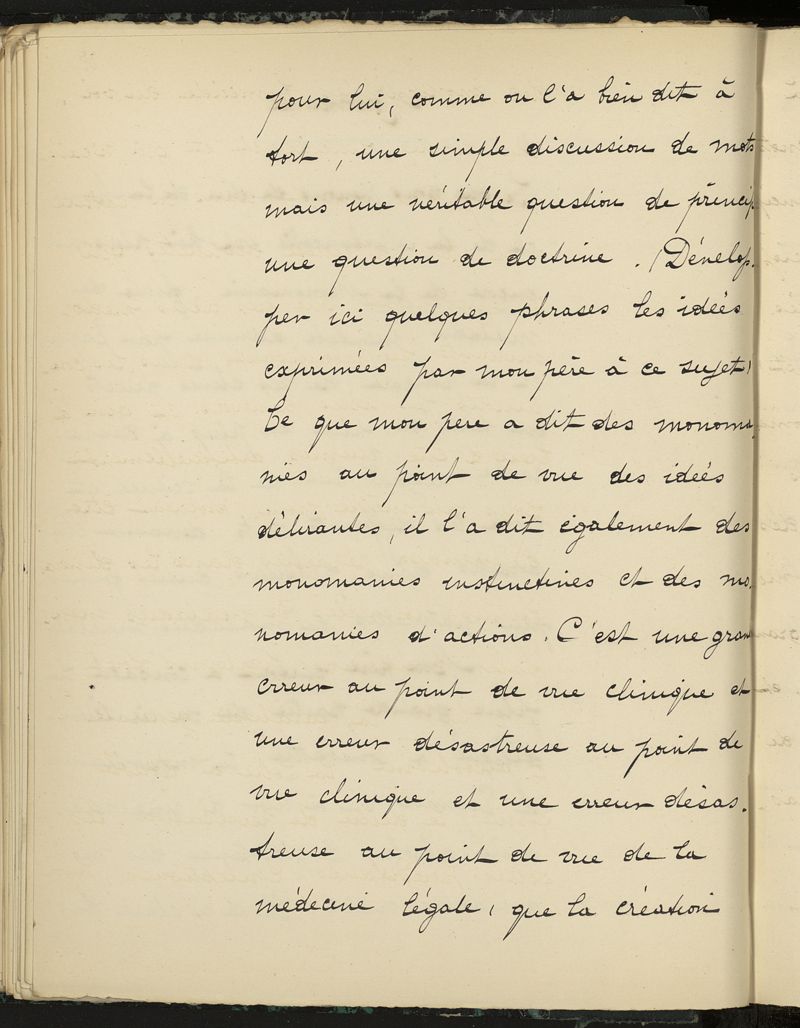 pour lui, comme on l'a bien dit à
tort, une simple discussion de mots
mais une véritable question de princip
une question de doctrine. (Dévelop-
per ici quelques phrases les idées
exprimées par mon père à ce sujet)
Ce que mon père a dit des monoma
nies au point de vue des idées
délirantes, il l'a dit également des
monomanies instinctives et des mo-
nomanies d'actions. C'est une gran
erreur au point de vue clinique et
une erreur désastreuse au point de
vue clinique et une erreur désas-
treuse au point de vue de la
médecine légale, que la création